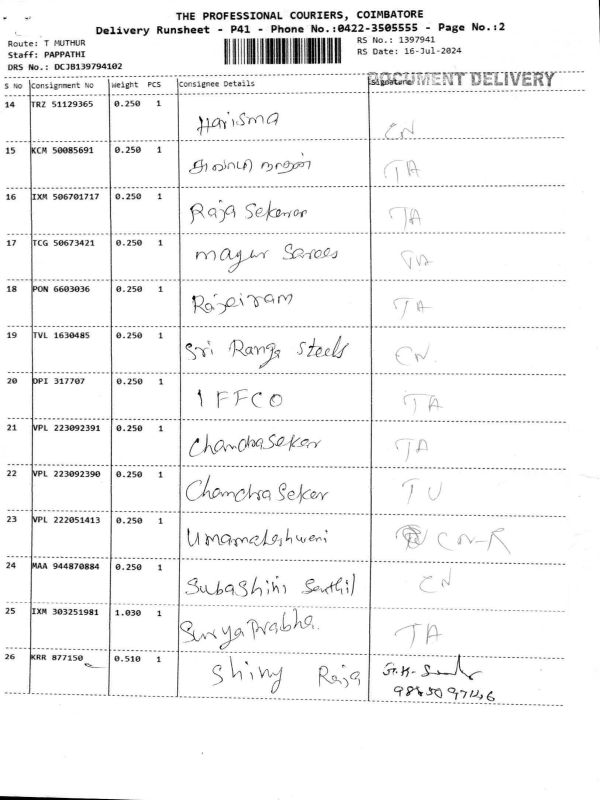 THE PROFESSIONAL COURIERS, COIMBATORE
Delivery Runsheet - P41 - Phone No.:0422-3505555 - Page No.:2
Route: T MUTHUR
RS No.: 1397941
Staff: PAPPATHI
RS Date: 16-Jul-2024
DRS No.: DCJB139794102
DOCUMENT DELIVERY
S No Consignment No Weight PCS Consignee Details Signature
14 TRZ 51129365 0.250 1 Harisma CN
15 KCM 50085691 0.250 1 TA
16 IXM 506701717 0.250 1 Raja Sekaran TA
17 TCG 50673421 0.250 1 mayur Sarees TA
18 PON 6603036 0.250 1 TA
19 TVL 1630485 0.250 1 Sri Ranga Steels CN
20 DPI 317707 0.250 1 IFFCO TA
21 VPL 223092391 0.250 1 Chandrasekar TA
22 VPL 223092390 0.250 1 Chandra Seker TU
23 VPL 222051413 0.250 1 Umamaheshweri CN-R
24 MAA 944870884 0.250 1 Subashini Senthil CN
25 IXM 303251981 1.030 1 Surya Prabha. TA
26 KRR 877150 0.510 1 Shiny Raja